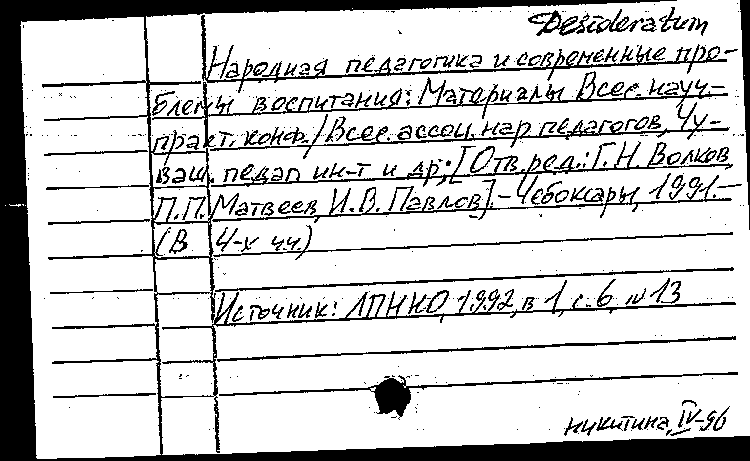 Desideratum
Народная педагогика и современные про-
блемы воспитания: Материалы Всес. науч.-
практ. конф./Всес. ассоц. нар педагогов, Чу-
ваш. педаг ин-т и др.; [Отв. ред.: Г.Н. Волков,
П.П. Матвеев, И.В. Павлов].- Чебоксары, 1991.-
(В 4-х чч.)
Источник: ЛПННО, 1992, в 1, с. 6, № 13
Никитина, IV-96